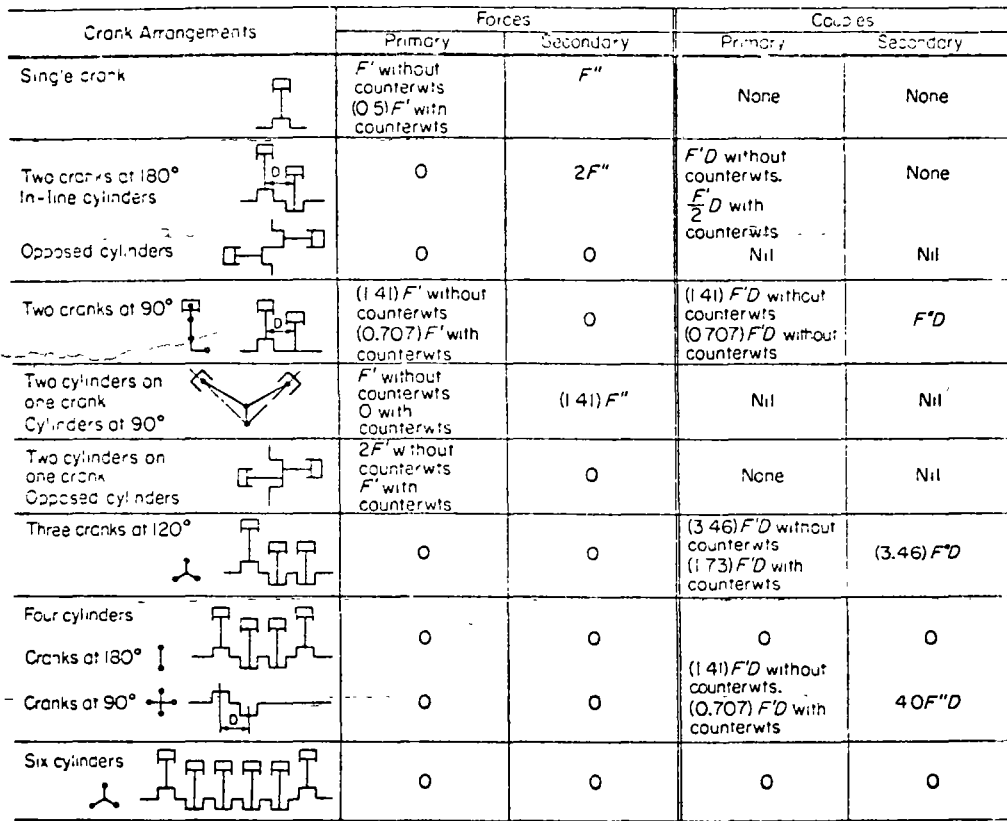 Crank Arrangements
Forces
Couples
Primary
Secondary
Primary
Secondary
Single crank
F' without
counterwts
(0 5)F' with
counterwts
F"
None
None
Two cranks at 180°
In-line cylinders
D
O
2F"
F'D without
counterwts.
F'/2 D with
counterwts
None
Opposed cylinders
O
O
Nil
Nil
Two cranks at 90°
D
(1 41)F' without
counterwts
(0.707)F' with
counterwts
O
(1 41) F'D without
counterwts
(0 707)F'D without
counterwts
F"D
Two cylinders on
one crank
Cylinders at 90°
F' without
counterwts
O with
counterwts
(1 41)F"
Nil
Nil
Two cylinders on
one crank
Opposed cylinders
2F' without
counterwts
F' with
counterwts
O
None
Nil
Three cranks at 120°
O
O
(3 46)F'D without
counterwts
(1 73)F'D with
counterwts
(3.46)F"D
Four cylinders
Cranks at 180°
O
O
O
O
Cranks at 90°
D
O
O
(1 41)F'D without
counterwts.
(0.707) F'D with
counterwts
4 0F"D
Six cylinders
O
O
O
O